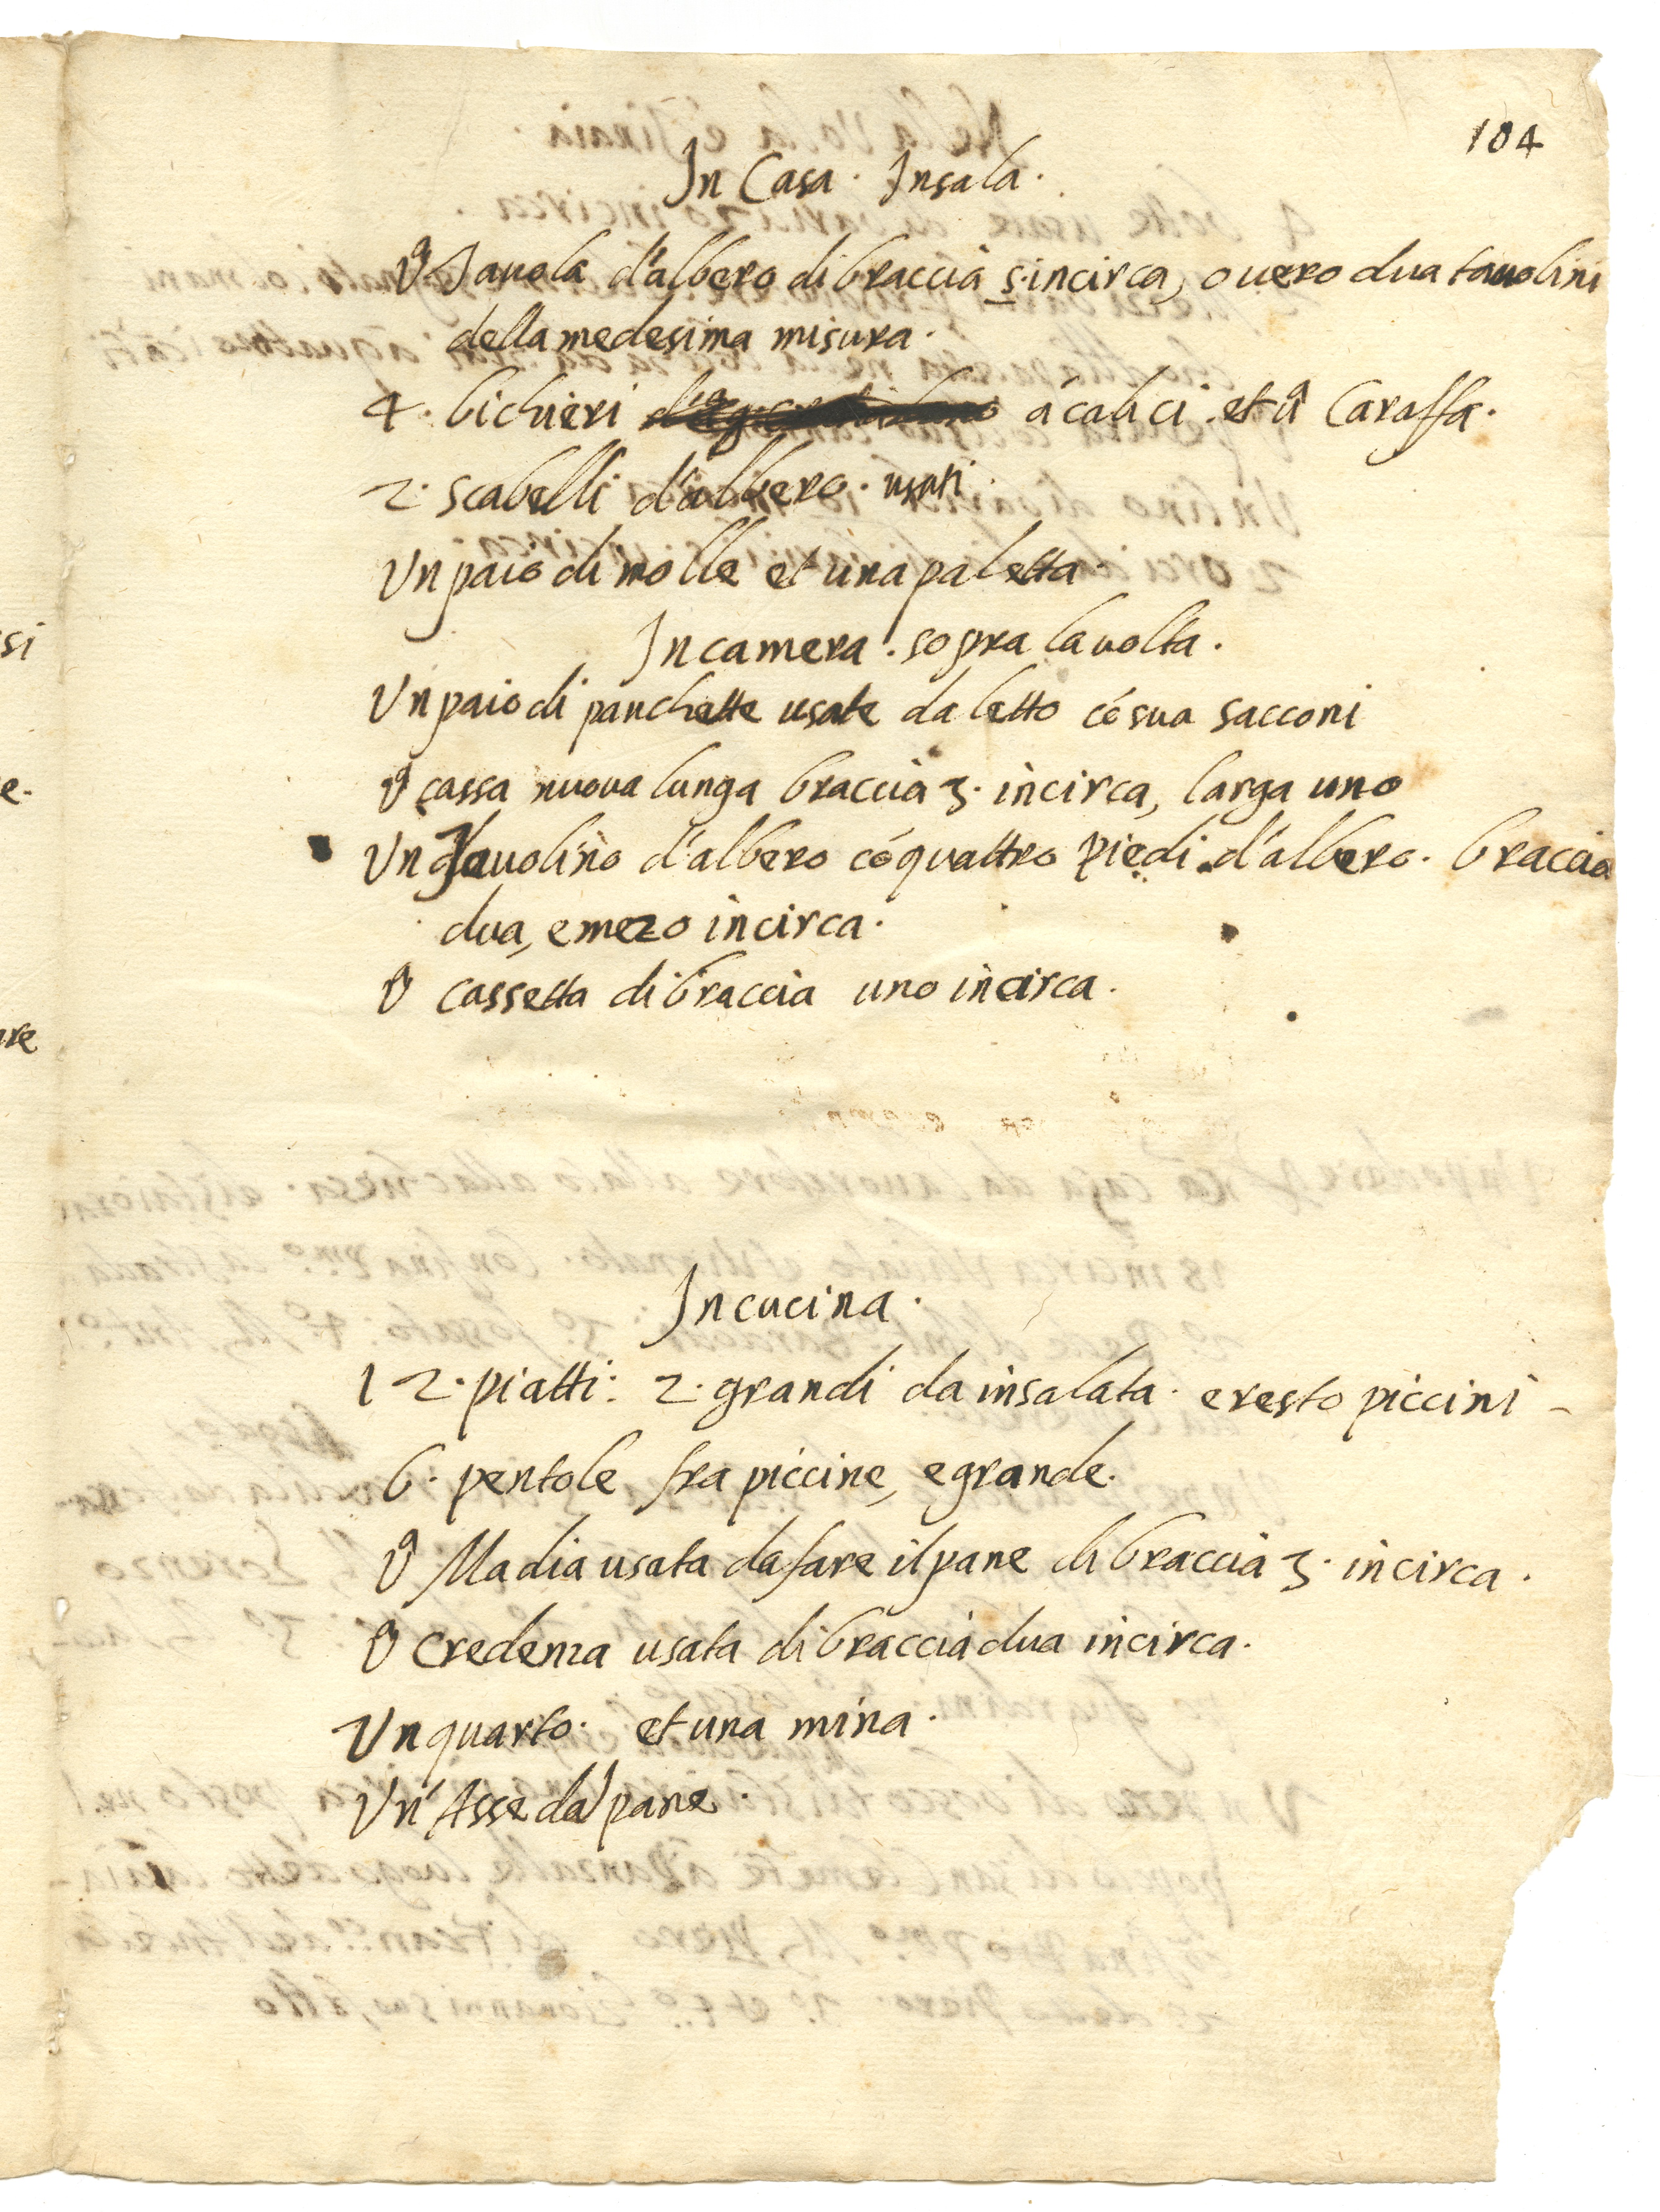 104
In Casa. Insala.
Vª Tauola d'albero di braccia 5. incirca, o uero dua tauolini
della medesima misura.
4. bichieri à calici. et ùª Caraffa.
2. scabelli d'albero. usati.
Un paio di molle et una paletta.
In camera. sopra la uolta.
Un paio di panchette usate da letto cō sua sacconi
Vª cassa nuova lunga braccia 3. incirca, larga uno
Un Tauolino d'albero cō quattro piedi d'albero. braccia
dua, e mezo incirca.
Vª cassetta di braccia uno incirca.
In cucina.
12. piatti: 2. grandi da insalata. e resto piccini -
6. pentole fra piccine, e grande.
Vª Madia usata da fare il pane di braccia 3. incirca.
Vª credenza usata di braccia dua incirca.
Un quarto. et una mina.
Un' Asse dal pane.
si
e.
re